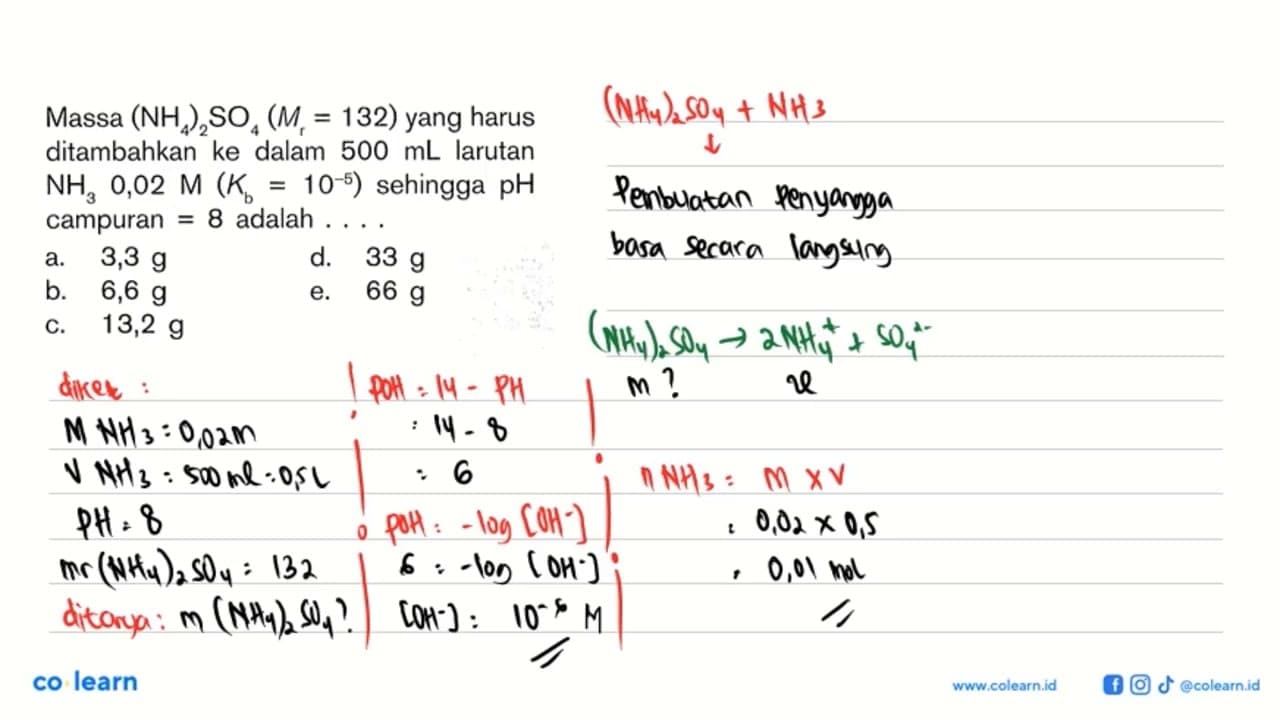 Massa (NH₄)₂SO₄ (Mᵣ = 132) yang harus
ditambahkan ke dalam 500 mL larutan
NH₃ 0,02 M (K_b = 10⁻⁵) sehingga pH
campuran = 8 adalah . . . .
a. 3,3 g
b. 6,6 g
c. 13,2 g
d. 33 g
e. 66 g
(NH₄)₂SO₄ + NH₃
↓
Pembuatan Penyangga
basa secara langsung
(NH₄)₂SO₄ → 2NH₄⁺ + SO₄²⁻
m ?
diket :
M NH₃ : 0,02 M
V NH₃ : 500 ml : 0,5 L
PH = 8
mr (NH₄)₂SO₄ : 132
ditanya : m (NH₄)₂SO₄ ?
POH : 14 - PH
: 14 - 8
: 6
POH : -log [OH⁻]
6 : -log [OH⁻]
[OH⁻] : 10⁻⁶ M
n NH₃ : M x V
: 0,02 x 0,5
: 0,01 mol
co learn
www.colearn.id
@colearn.id